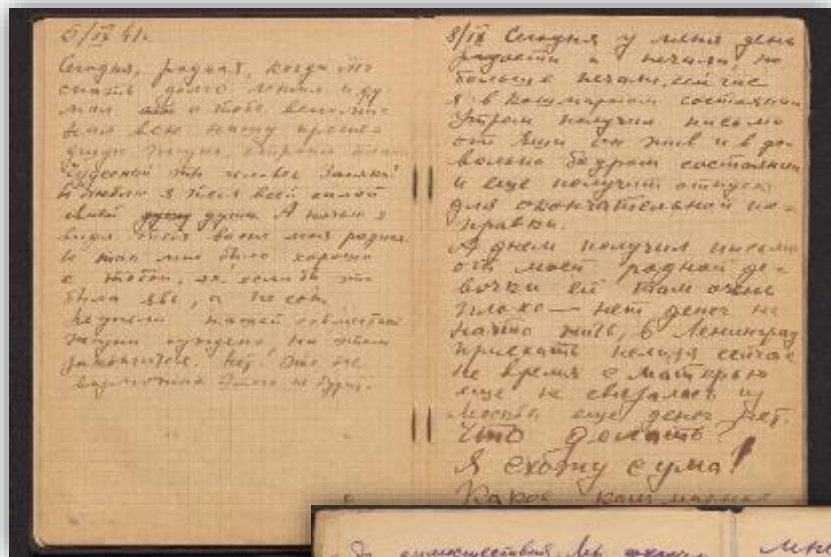 5/IX 41г.
Сегодня, родная, когда лег
спать долго лежал и ду
мал о тебе вспоми-
нал всю нашу прошед-
шую жизнь,
Чудесный ты человек
И люблю я тебя всей силой
своей души. А ночью я
видел тебя во сне моя родная.
И так мне было хорошо
с тобой, ах, если бы это
была явь, а не сон.
Неужели нашей совместной
жизни суждено на этом
закончится. Нет! Это не
возможно этого не будет.
8/IX Сегодня у меня день
радости и печали, но
больше печали, сейчас
я в кошмарном состоянии
Утром получил письмо
от Яши он жив и в до-
вольно бодром состоянии
и еще получит отпуск
для окончательной по-
правки.
А днем получил письмо
от моей родной де-
вочки ей там очень
плохо — нет денег не
на что жить, в Ленинград
приехать нельзя сейчас
не время с матерью
еще не связалась из
Москвы еще денег нет.
Что делать?
Я схожу с ума!
Какое кошмарное
мы